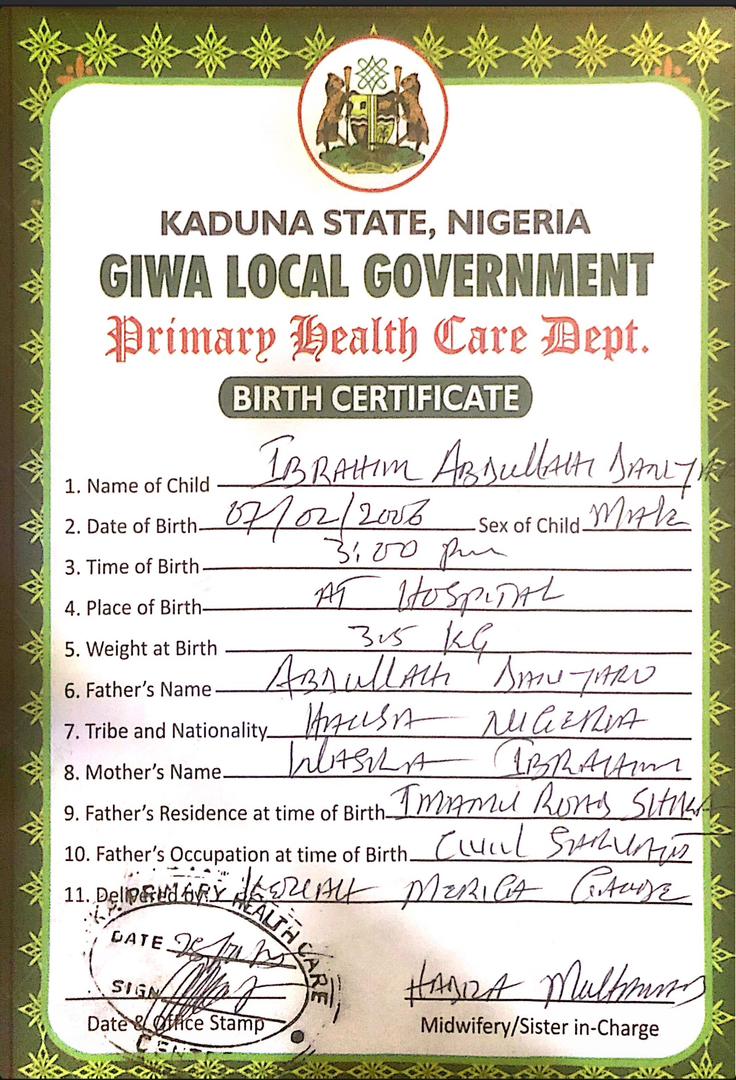 KADUNA STATE, NIGERIA
GIWA LOCAL GOVERNMENT
Primary Health Care Dept.
BIRTH CERTIFICATE
1. Name of Child IBRAHIM ABDULLAHI
2. Date of Birth 07/02/2006 Sex of Child Male
3. Time of Birth 3:00 pm
4. Place of Birth AT HOSPITAL
5. Weight at Birth 3.5 KG
6. Father's Name ABDULLAHI DANJARO
7. Tribe and Nationality HAUSA NIGERIA
8. Mother's Name IBRAHIM
9. Father's Residence at time of Birth ROAD
10. Father's Occupation at time of Birth CIVIL
11. Delivered by:
PRIMARY HEALTH CARE
DATE
SIGN
Date & Office Stamp
Midwifery/Sister in-Charge
CENTRE